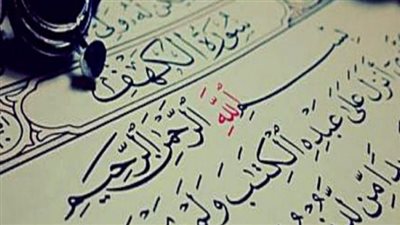 سُورَةُ الْكَهْفِ
بِسْمِ اللَّهِ الرَّحْمَٰنِ الرَّحِيمِ
أَنزَلَ عَلَىٰ عَبْدِهِ الْكِتَٰبَ وَلَمْ
مِّن